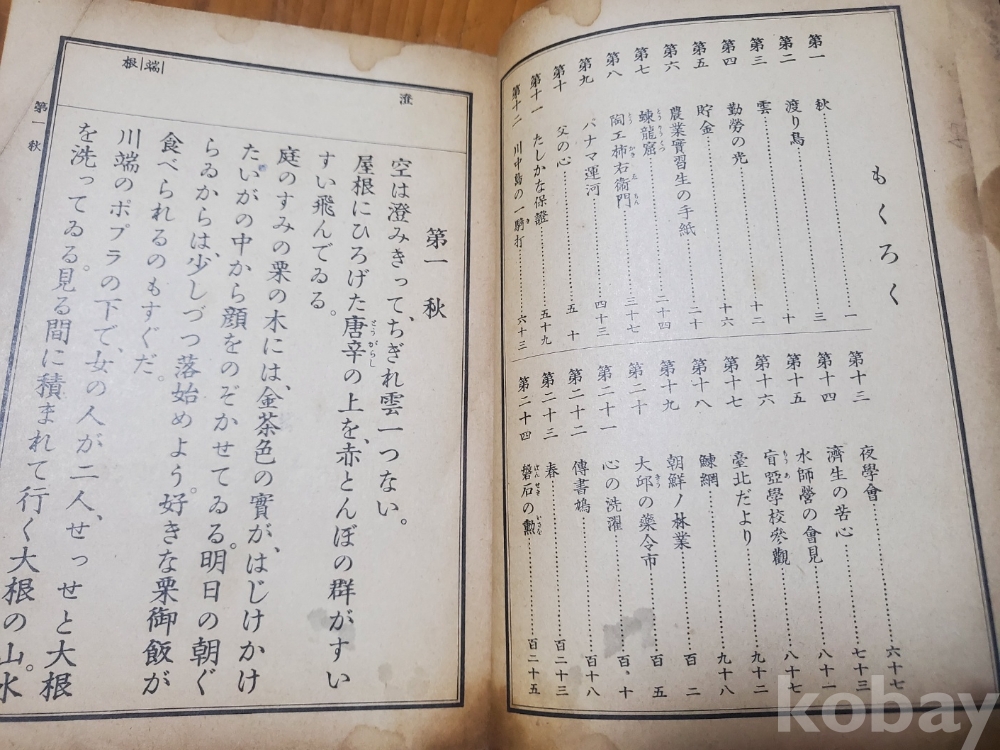 もくろく
第一 秋 一
第二 渡り鳥 三
第三 雲 十
第四 勤勞の光 十二
第五 貯金 十六
第六 農業實習生の手紙 二十
第七 蝀龍窟 二十四
第八 陶工柿右衞門 三十七
第九 パナマ運河 四十三
第十 父の心 五十
第十一 たしかな保證 五十九
第十二 川中島の一騎打 六十三
第十三 夜學會 六十七
第十四 濟生の苦心 七十三
第十五 水師營の會見 八十一
第十六 盲啞學校參觀 八十七
第十七 臺北だより 九十二
第十八 鰊網 九十八
第十九 朝鮮ノ林業 百二
第二十 大邱の藥令市 百五
第二十一 心の洗濯 百十
第二十二 傳書鳩 百十八
第二十三 春 百二十三
第二十四 磐石の勳 百二十五
澄
端
根
第一 秋
空は澄みきって、ちぎれ雲一つない。
屋根にひろげた唐辛の上を、赤とんぼの群がすい
すい飛んでゐる。
庭のすみの栗の木には、金茶色の實が、はじけかけ
たいがの中から顔をのぞかせてゐる。明日の朝ぐ
らゐからは、少しづつ落始めよう。好きな栗御飯が
食べられるのもすぐだ。
川端のポプラの下で、女の人が二人、せっせと大根
を洗ってゐる。見る間に積まれて行く大根の山。水
第一 秋
kobay